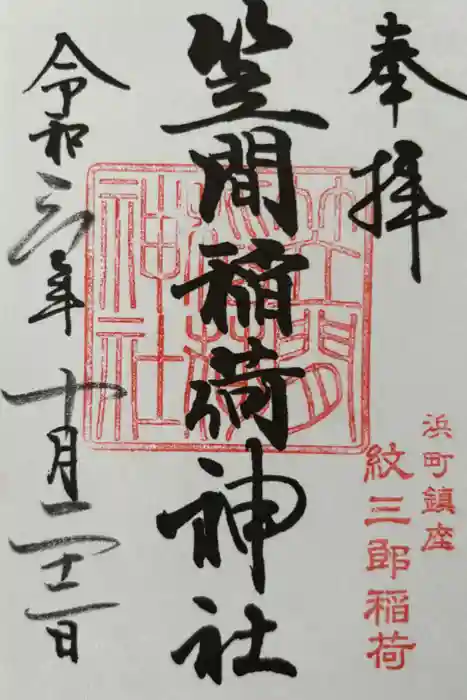 奉拝
浜町鎮座
紋三郎稲荷
笠間稲荷神社
笠間稲荷神社
令和三年十月二十一日